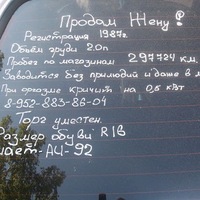 Продам Жену!
Регистрация 1987г.
Объём груди 2.0л
Пробег по магазинам 297724 км.
Заводится без прилюдий и даже в м
При оргазме кричит на 0,5 кВт
8-952-883-86-04
Торг уместен.
Размер обуви R16
АИ-92